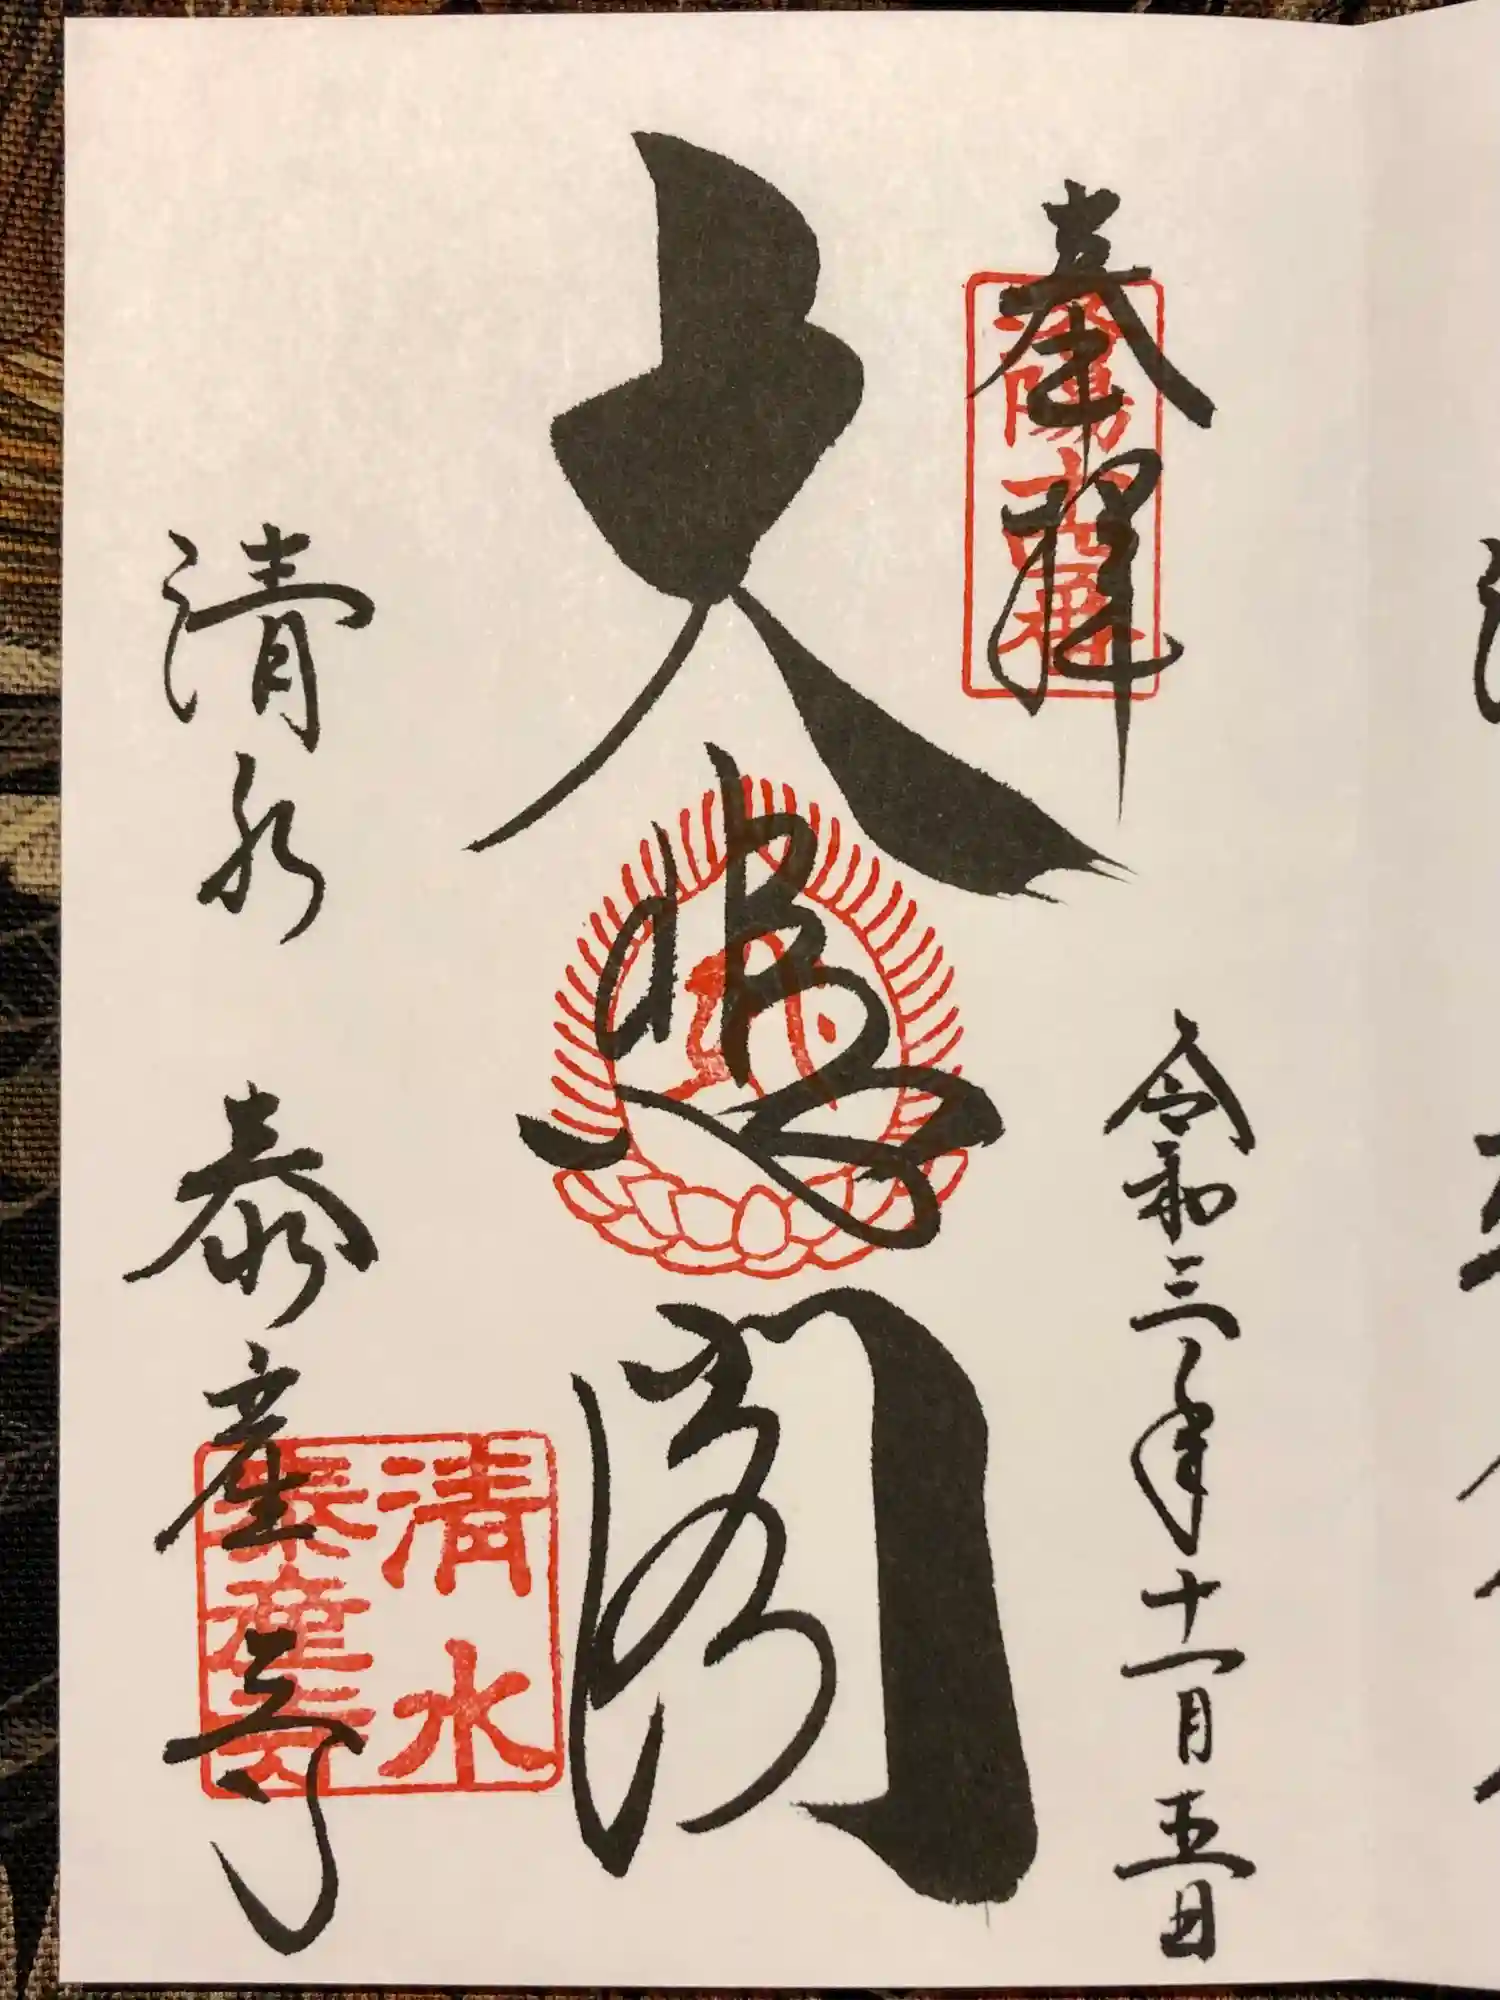 奉拝
洛陽十四番
令和三年十一月五日
大悲閣
清水 泰産寺
清水
泰産寺